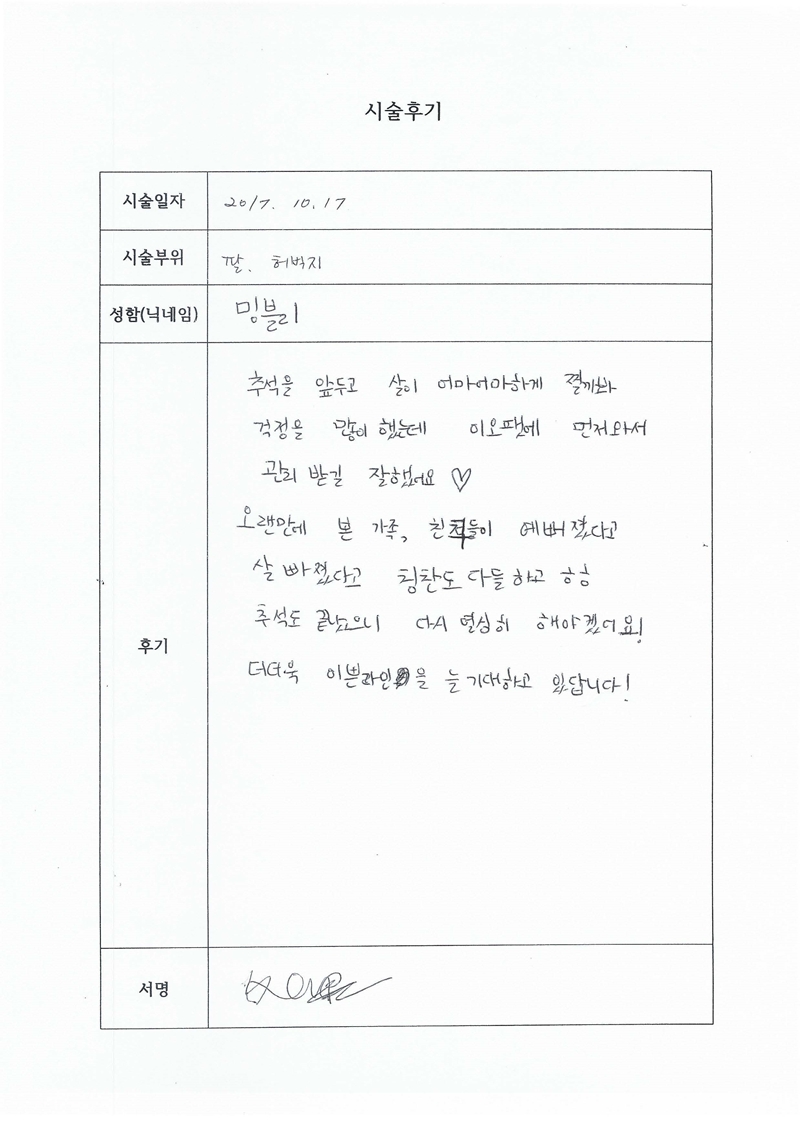 시술후기
시술일자 2017. 10. 17
시술부위 팔, 허벅지
성함(닉네임) 밍블리
후기
추석을 앞두고 살이 어마어마하게 찔까봐
걱정을 많이 했는데 이오팻에 먼저와서
관리 받길 잘했어요 ♡
오랜만에 본 가족, 친척들이 예뻐졌다고
살 빠졌다고 칭찬도 다들하고 ㅎㅎ
추석도 끝났으니 다시 열심히 해야겠어요!
더더욱 이쁜라인을 늘 기대하고 있답니다!
서명